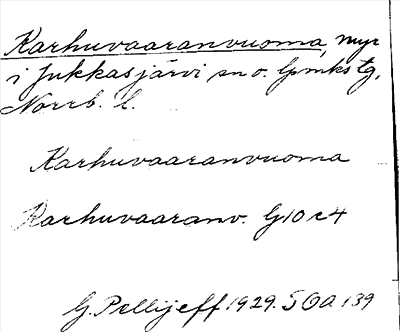 Karhuvaaranvuoma, myr
i Jukkasjärvi sn o. lpmkstg,
Norrb. l.
Karhuvaaranvuoma
Karhuvaaranv. G10 c4
G. Pellijeff 1929. SOA 139